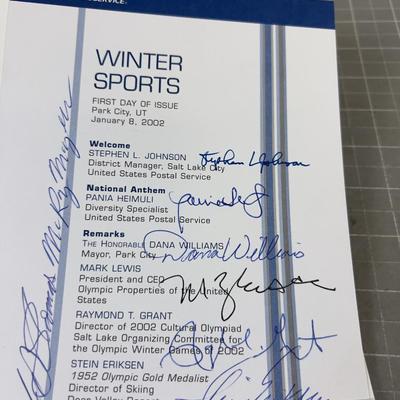 SERVICE.
WINTER
SPORTS
FIRST DAY OF ISSUE
Park City, UT
January 8, 2002
Welcome
STEPHEN L. JOHNSON
District Manager, Salt Lake City
United States Postal Service
National Anthem
PANIA HEIMULI
Diversity Specialist
United States Postal Service
Remarks
THE HONORABLE DANA WILLIAMS
Mayor, Park City
MARK LEWIS
President and CEO
Olympic Properties of the United
States
RAYMOND T. GRANT
Director of 2002 Cultural Olympiad
Salt Lake Organizing Committee for
the Olympic Winter Games of 2002
STEIN ERIKSEN
1952 Olympic Gold Medalist
Director of Skiing
Deer Valley Resort
Stephen L Johnson
Dana Williams